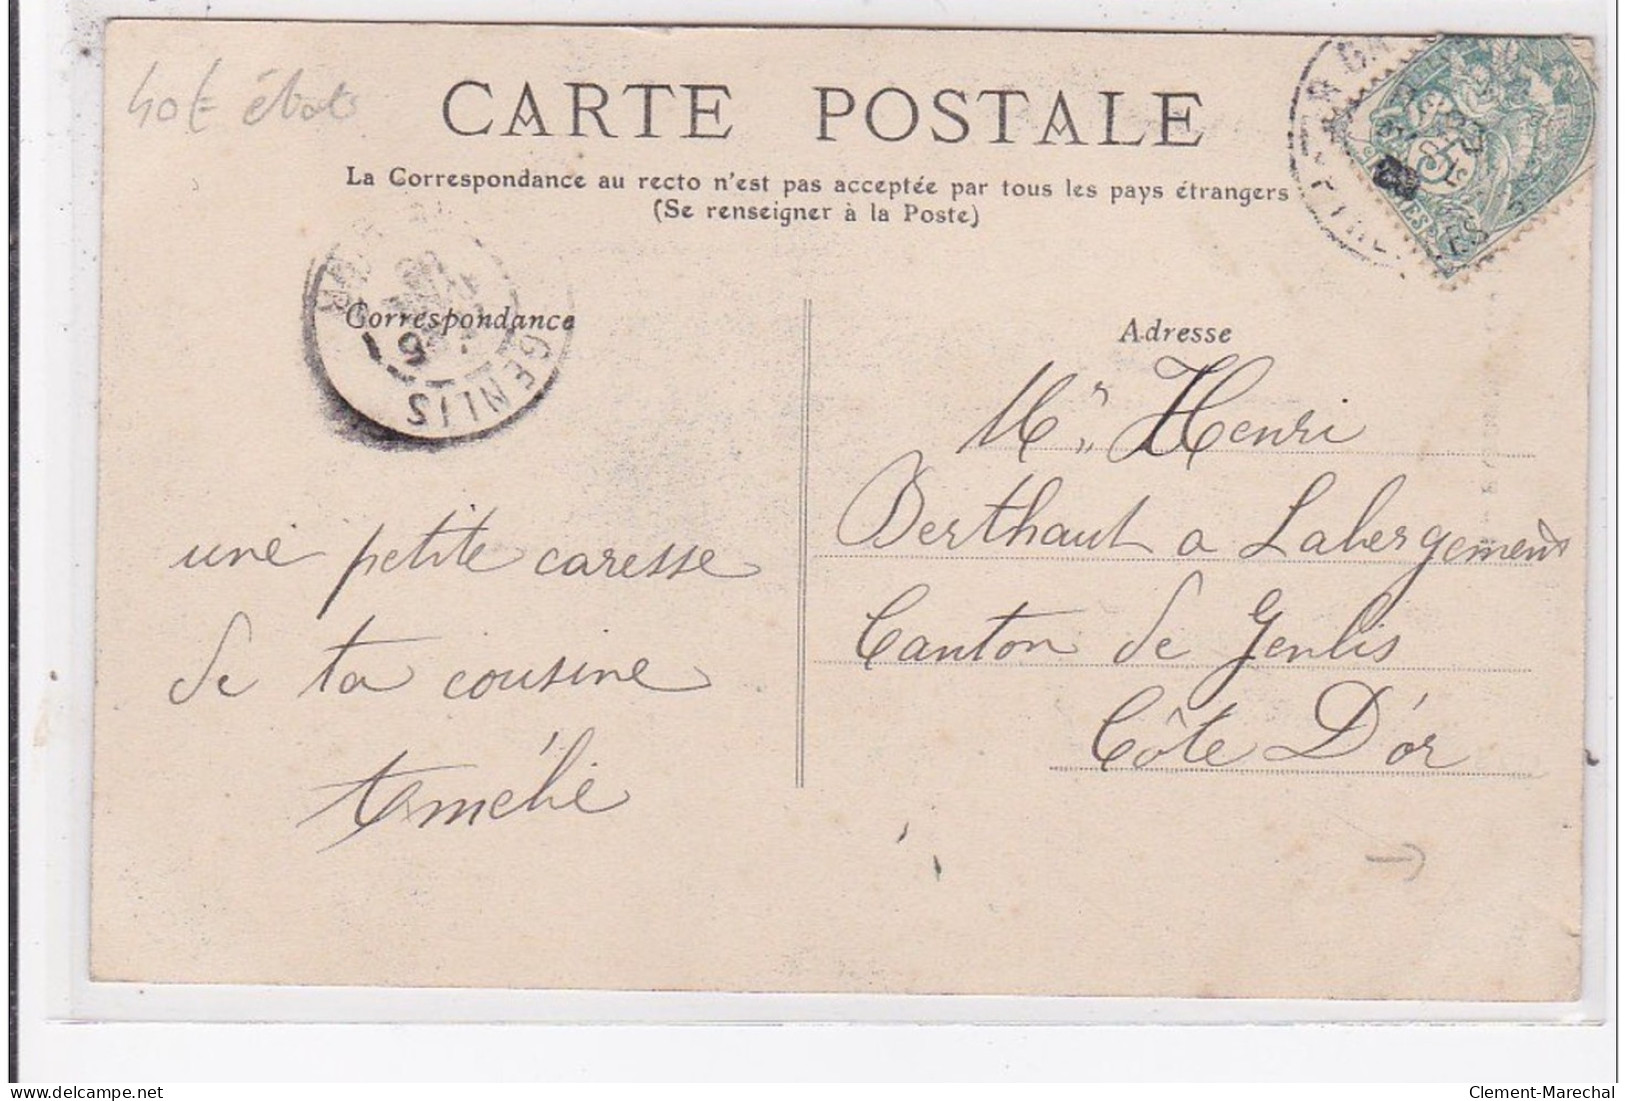 40€
CARTE POSTALE
La Correspondance au recto n'est pas acceptée par tous les pays étrangers
(Se renseigner à la Poste)
GENLIS
Correspondance
Adresse
Mr Henri
Berthaut a Labergement
Canton de Genlis
Côte D'or
une petite caresse
de ta cousine
Amélie
Clement-Marechal